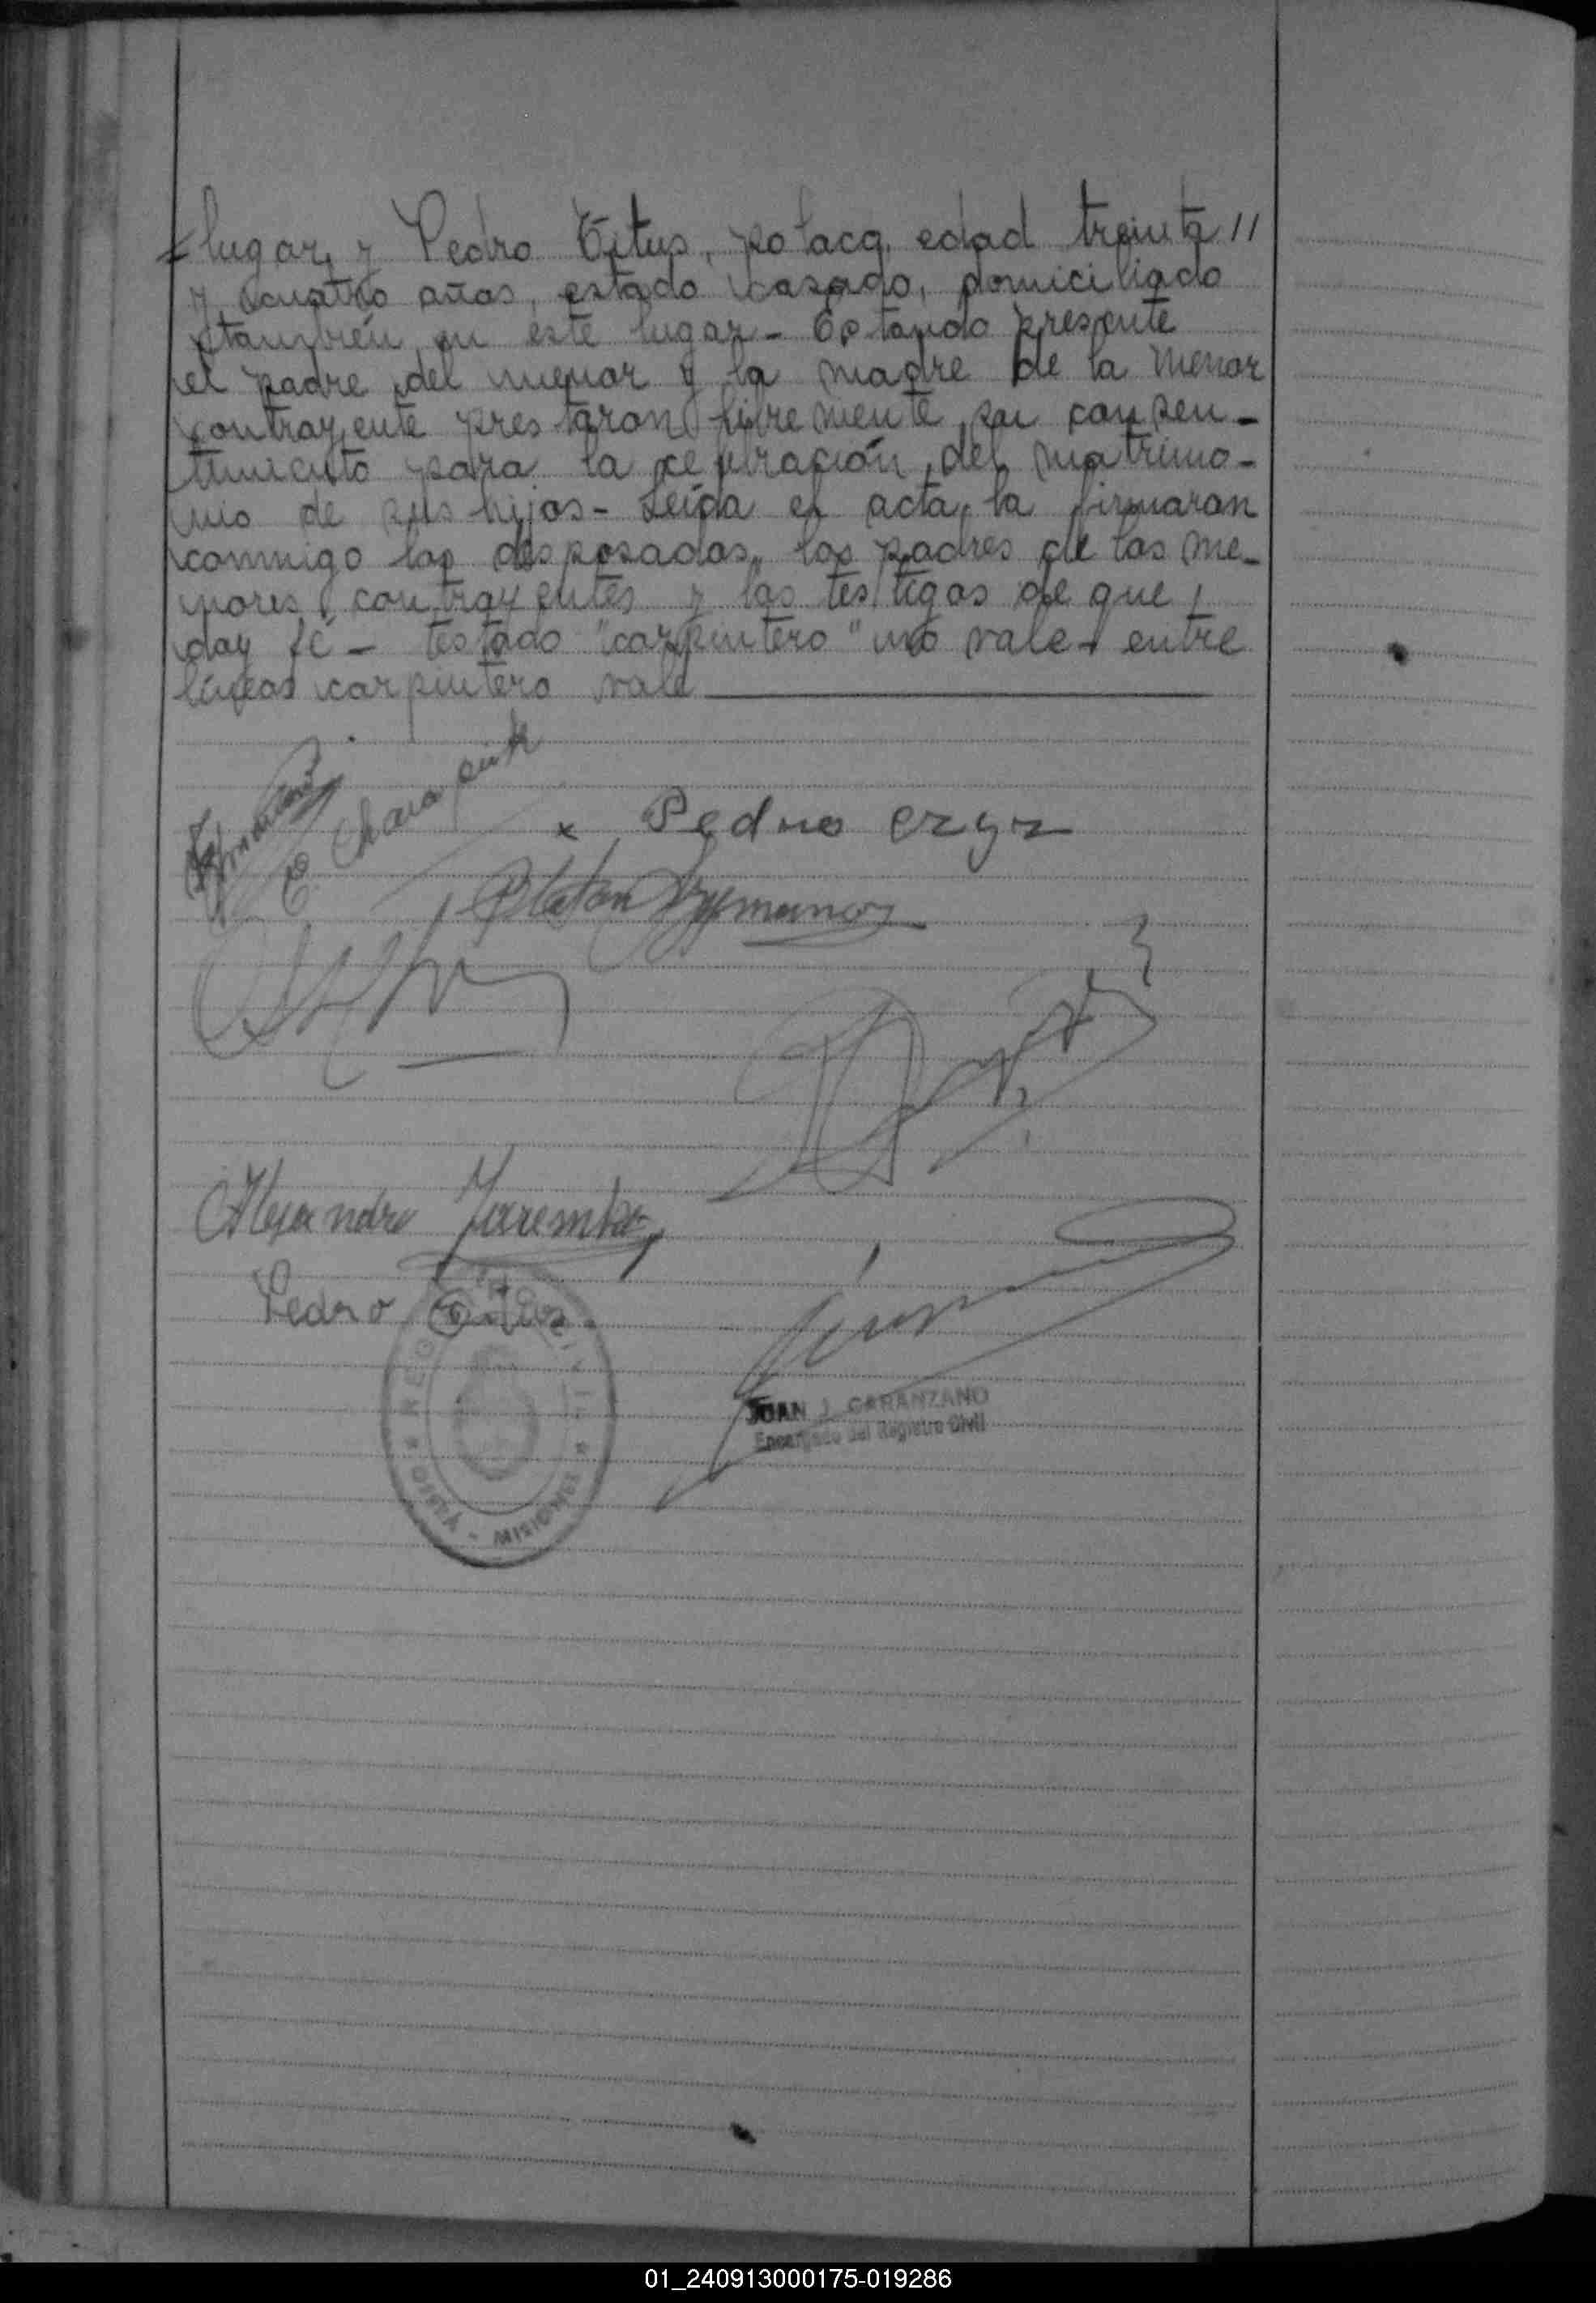 lugar, y Pedro Titus, polaco, edad treinta //
y cuatro años, estado casado, domiciliado
también en este lugar - Estando presente
el padre del menor y la madre de la menor
contrayente prestaron libremente su consen-
timiento para la celebración del matrimo-
nio de sus hijos - Leída el acta, la firmaron
conmigo los desposados, los padres de los me-
nores contrayentes y los testigos de que,
doy fé - testado "carpintero" no vale - entre
líneas carpintero vale
x Pedro
Platon
Alejandro Jaremko
Pedro
JUAN J. GARANZANO
Encargado del Registro Civil
REGISTRO CIVIL
MISIONES
01_240913000175-019286